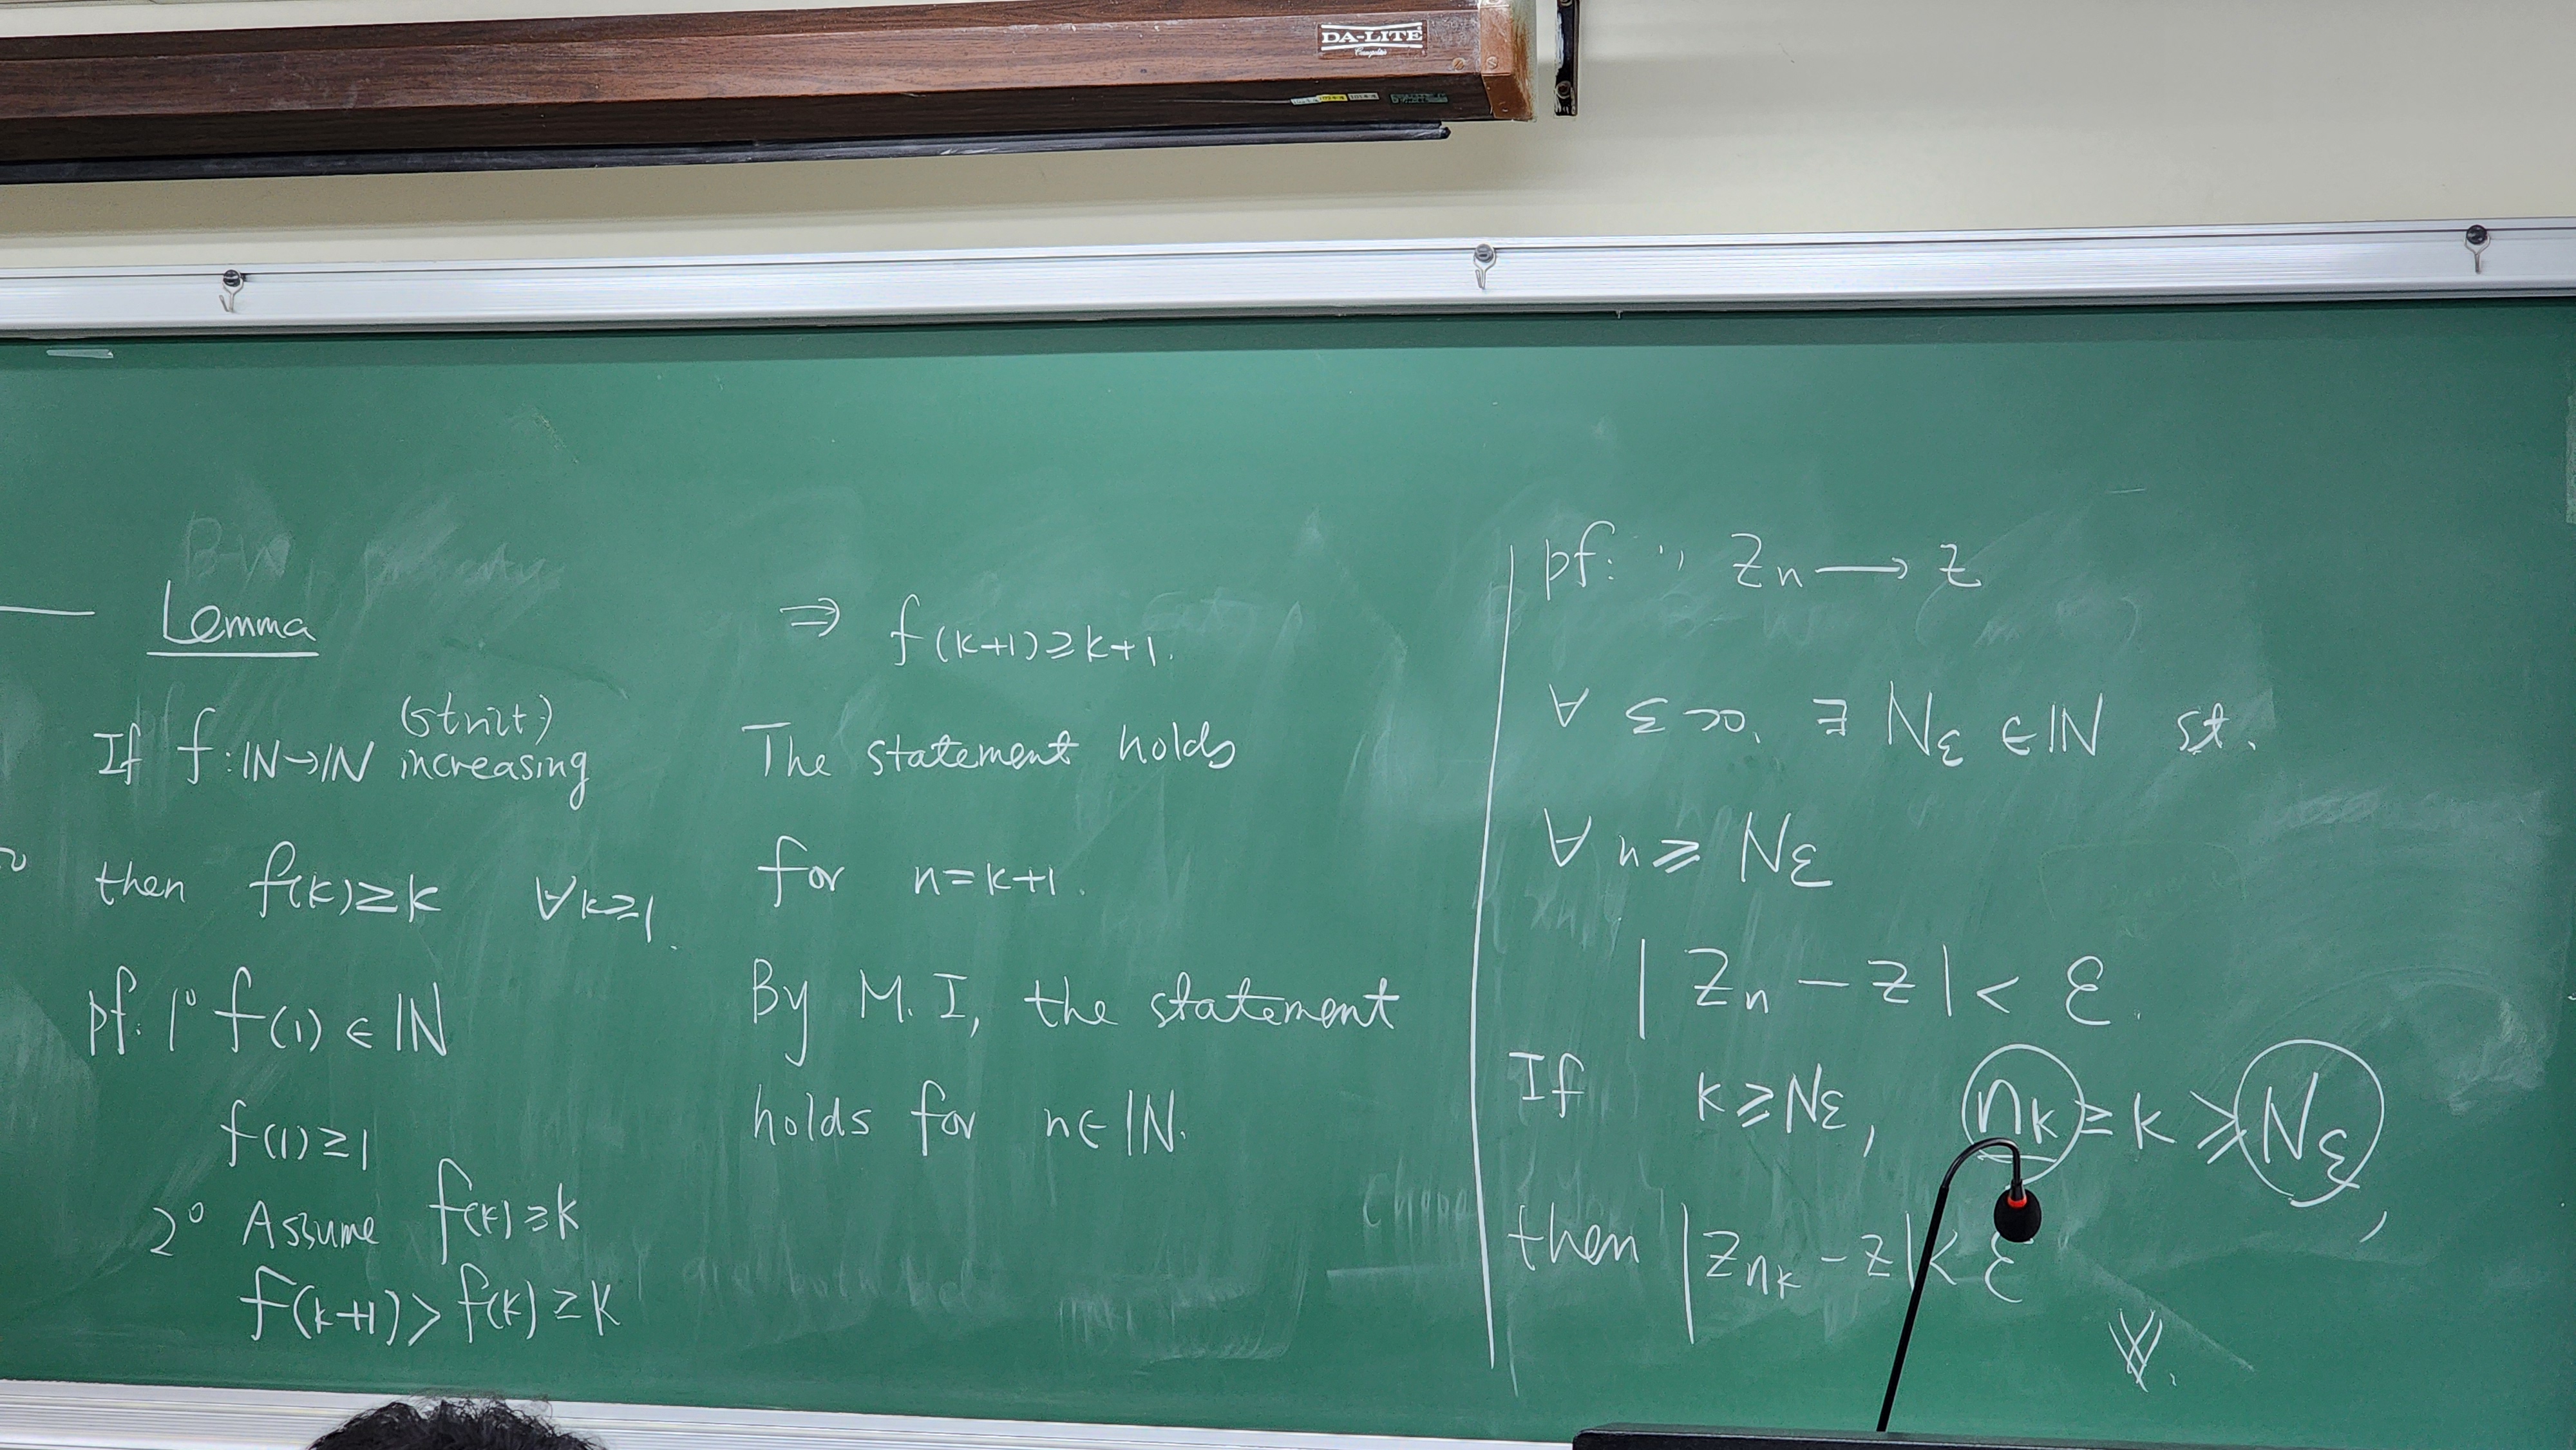 DA-LITE
Lemma
If f: ℕ→ℕ (strict) increasing
then f(k)≥k ∀k≥1.
pf: 1° f(1) ∈ ℕ
f(1)≥1
2° Assume f(k)≥k
f(k+1)>f(k)≥k
⇒ f(k+1)≥k+1.
The statement holds
for n=k+1.
By M.I, the statement
holds for n∈ℕ.
pf: ∵ Zn → Z
∀ ε>0, ∃ Nε ∈ ℕ st.
∀ n ≥ Nε
|Zn − Z| < ε.
If k≥Nε, nk ≥ k ≥ Nε,
then |Znk − Z| < ε